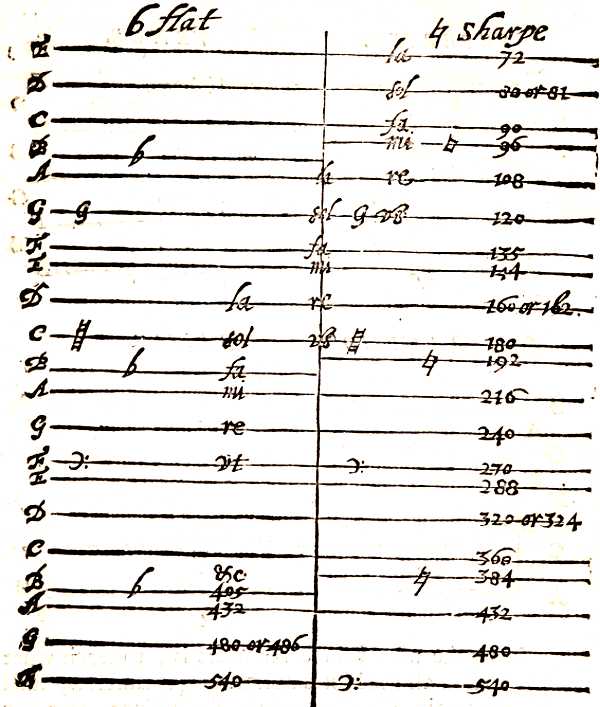 b flat ♮ sharpe
E la 72
D sol 80 or 81
C fa 90
B b mi ♮ 96
A la re 108
G g sol G vt 120
F fa 135
E mi 154
D la re 160 or 162
C sol vt 180
B b fa ♮ 192
A mi 216
G re 240
F vt 270
E 288
D 320 or 324
C 360
B b &c 405 ♮ 384
A 432 432
G 480 or 486 480
F 540 540